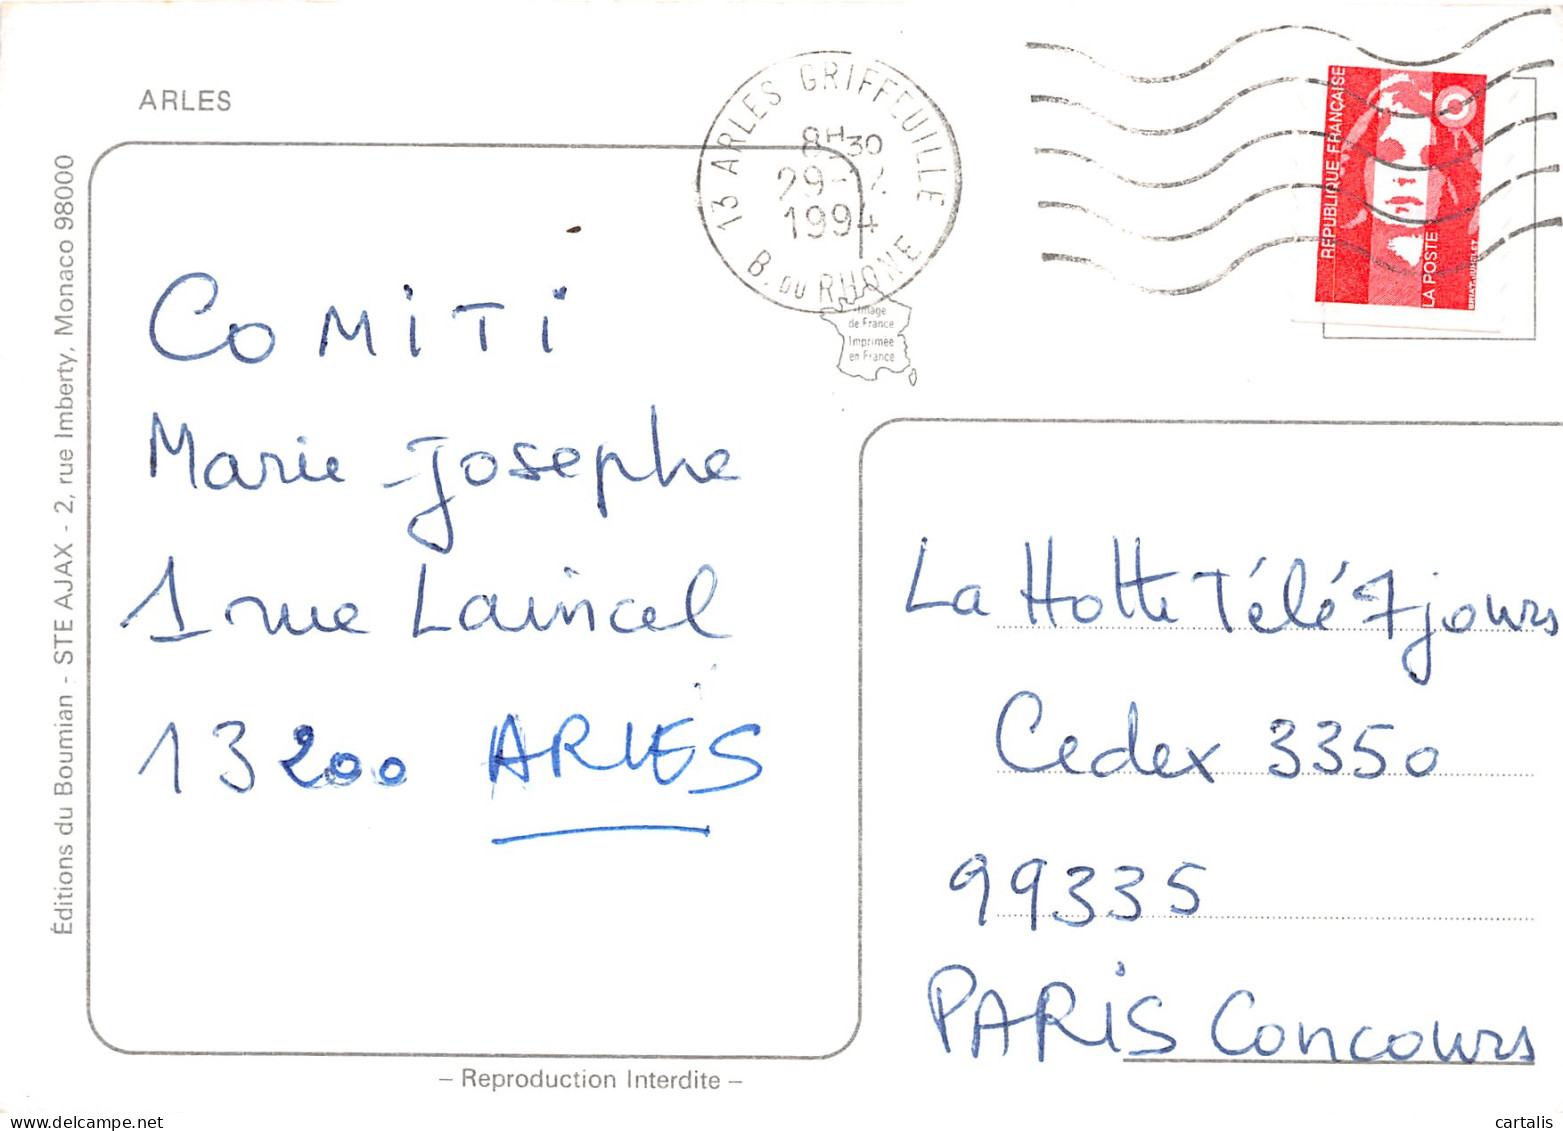 ARLES
13 ARLES GRIFFEUILLE
8H30
29-12
1994
B. DU RHONE
REPUBLIQUE FRANÇAISE
LA POSTE
BRIAT-JUMELET
Image
de France
Imprimée
en France
Éditions du Boumian - STE AJAX - 2, rue Imberty, Monaco 98000
COMITI
Marie-Josephe
1 rue Laincel
13200 ARLES
La Hotte Télé 7 jours
Cedex 3350
99335
PARIS Concours
– Reproduction Interdite –
cartalis